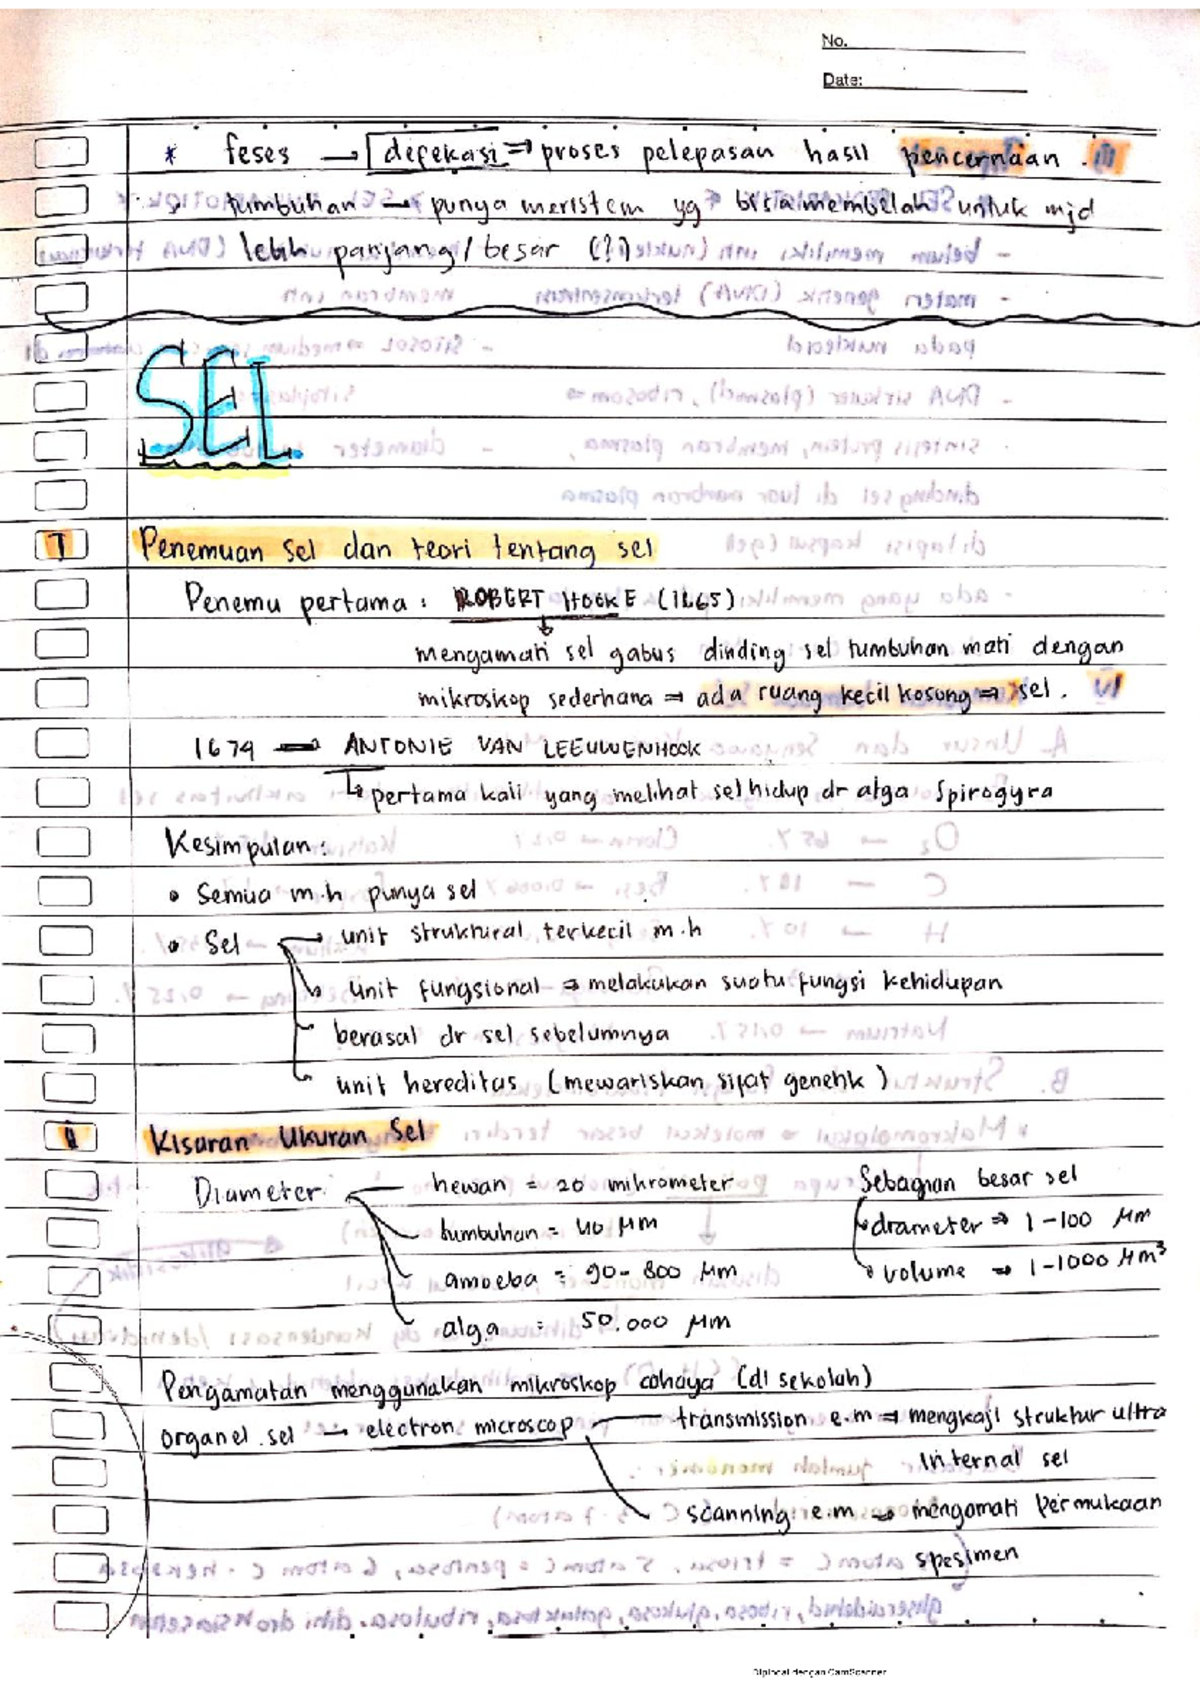 No.
Date:
* feses → defekasi ⇒ proses pelepasan hasil pencernaan.
tumbuhan → punya meristem yg bisa membelah untuk mjd
lebih panjang / besar (?)
SEL
I Penemuan sel dan teori tentang sel
Penemu pertama : ROBERT HOOKE (1665)
mengamati sel gabus dinding sel tumbuhan mati dengan
mikroskop sederhana ⇒ ada ruang kecil kosong ⇒ sel.
1674 → ANTONIE VAN LEEUWENHOOK
↳ pertama kali yang melihat sel hidup dr alga Spirogyra
Kesimpulan :
• Semua m.h punya sel
• Sel → unit struktural terkecil m.h
unit fungsional ⇒ melakukan suatu fungsi kehidupan
berasal dr sel sebelumnya
unit hereditas (mewariskan sifat genetik)
II Kisaran Ukuran Sel
Diameter hewan = 20 mikrometer
tumbuhan = 40 μm
amoeba = 90 - 800 μm
alga = 50.000 μm
Sebagian besar sel
diameter ⇒ 1 - 100 μm
volume ⇒ 1 - 1000 μm³
Pengamatan menggunakan mikroskop cahaya (di sekolah)
organel sel → electron microscop transmission e.m ⇒ mengkaji struktur ultra
internal sel
scanning e.m → mengamati permukaan
spesimen
Dipindai dengan CamScanner